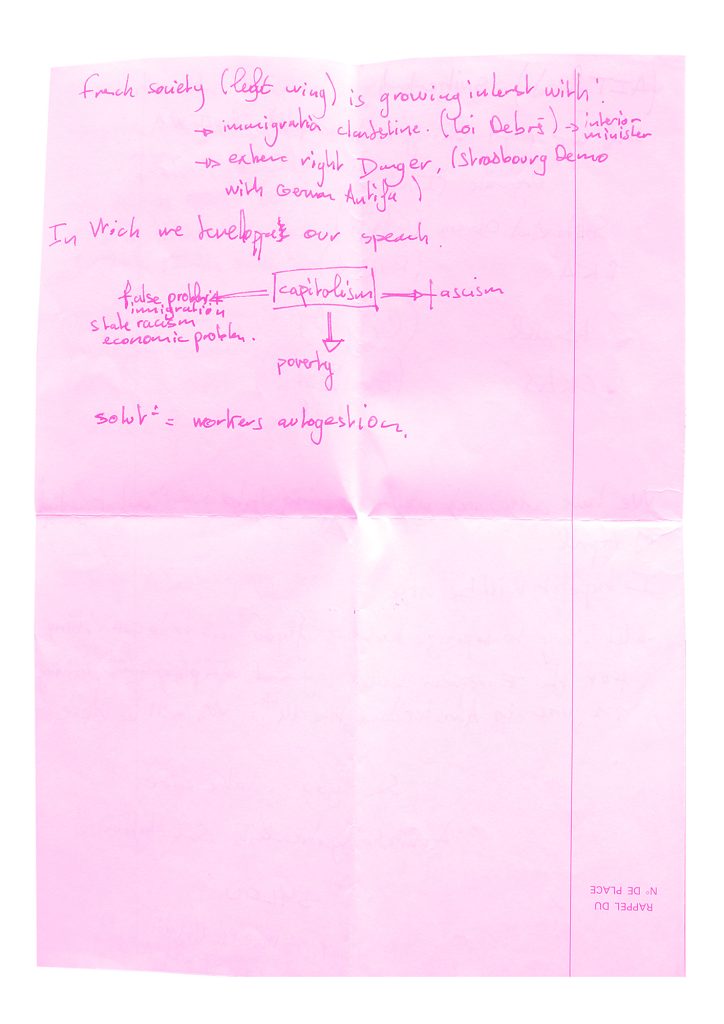 french society (left wing) is growing interst with:
→ immigration clandstine. (Loi Debré) → interior minister
→ extreme right Danger, (Strasbourg Demo
with German Antifa)
In Wich we developpe our speach.
false problem ← capitalism → fascism
immigration
state racism
economic problem.
↓
poverty
solut° = workers autogestion.
RAPPEL DU
N° DE PLACE